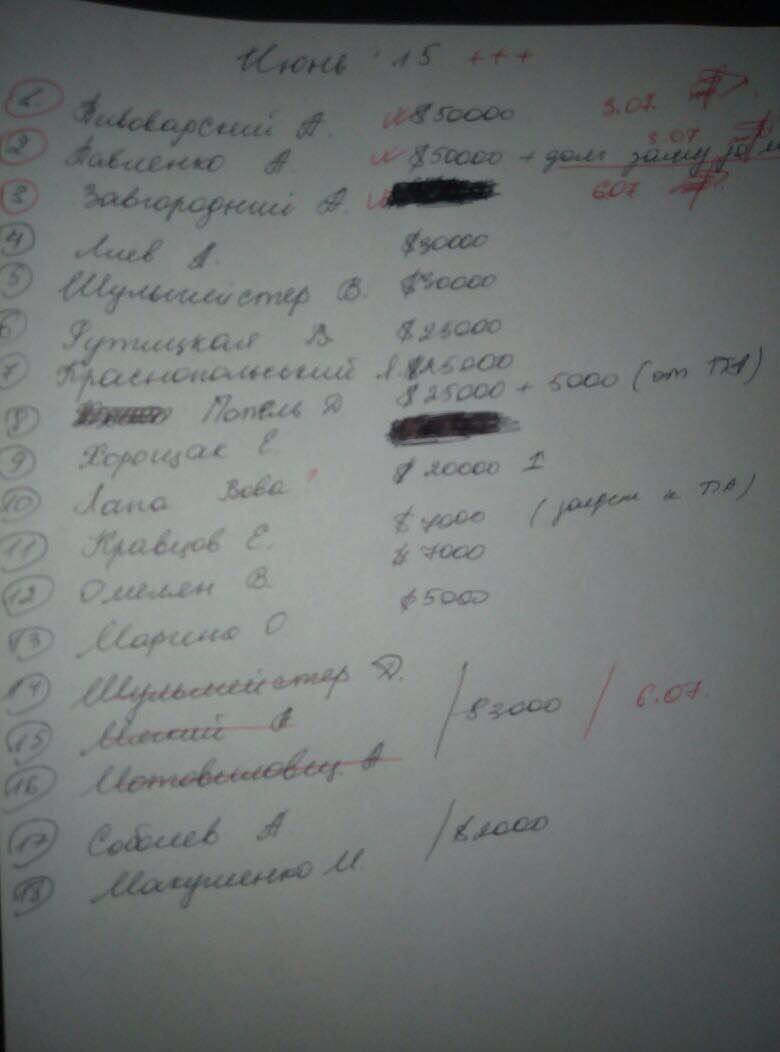 Июнь 15 +++
1 Пивоварский А. $50000 3.07.
2 Павленко А. $50000 + долг 3.07
3 Завгородний А. 6.07
4 Лиев А. $30000
5 Шульмейстер В. $30000
6 Рутицкая В $25000
7 Краснопольський Я. $25000
8 Мотель Д $25000 + 5000 (от
9 Хорощак Е
10 Лапа Вова ! $20000
11 Кравцов Е. $7000
12 Омелян В. $7000
13 Марино О $5000
14 Шульмейстер Д.
15 А $3000 6.07.
16 А
17 Соболев А
18 Макуменко И. $2000